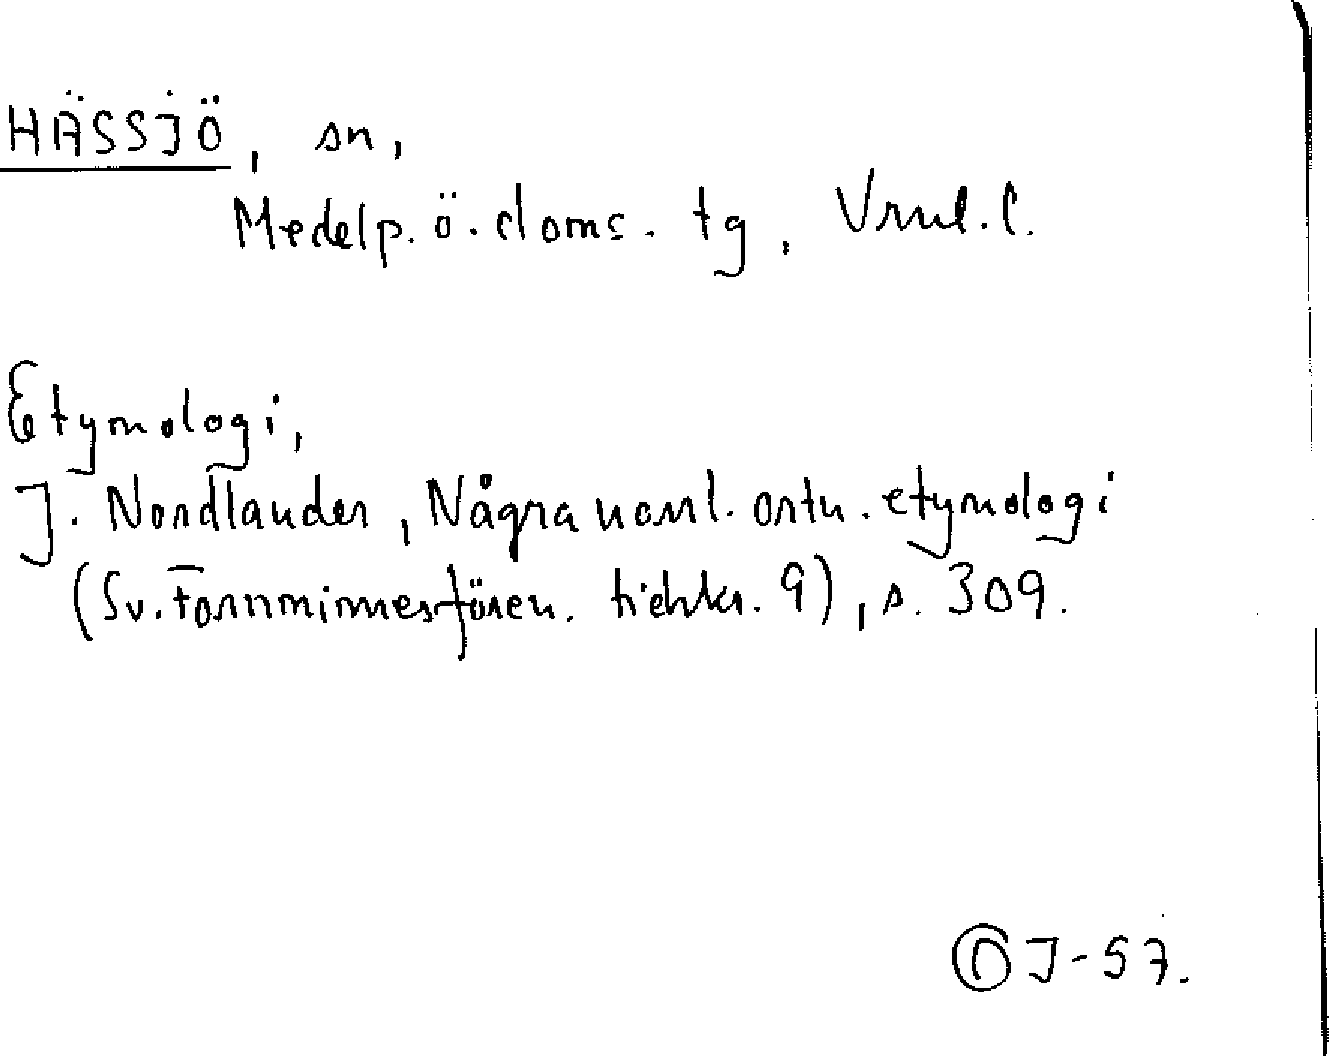 HÄSSJÖ, sn,
Medelp. ö. doms. tg, Vrnl. l.
Etymologi,
J. Nordlander, Några norrl. ortn. etymologi
(Sv. Fornminnesfören. tidskr. 9), s. 309.
J-57.